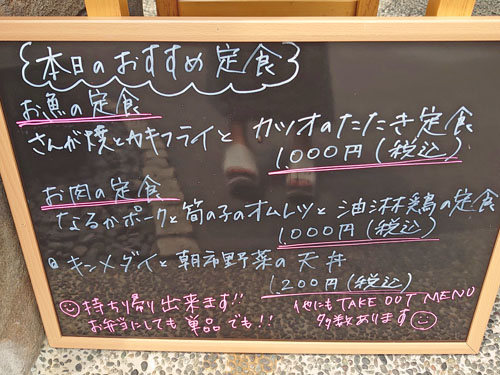 本日のおすすめ定食
お魚の定食
さんが焼とカキフライと カツオのたたき定食
1,000円(税込)
お肉の定食
なるかポークと筍の子のオムレツと 油淋鶏の定食
1,000円(税込)
キンメダイと朝市野菜の天丼
1,200円(税込)
持ち帰り出来ます!!
お弁当にしても単品でも!!
他にもTAKE OUT MENU
多数あります